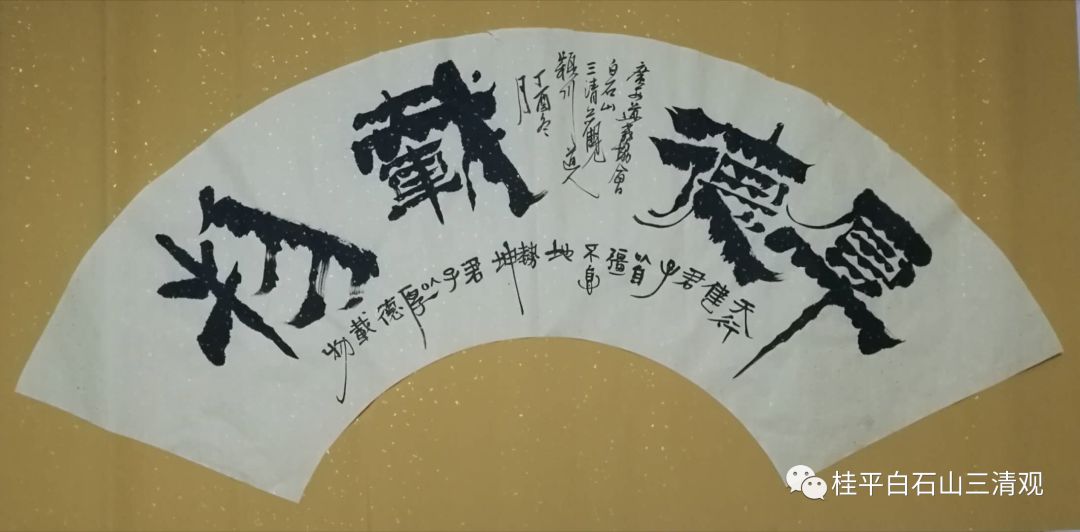 厚德載物
廣西道教協會
白石山
三清觀
穎川道人
丁酉冬月
天行健君子以自強不息地勢坤君子以厚德載物
桂平白石山三清观